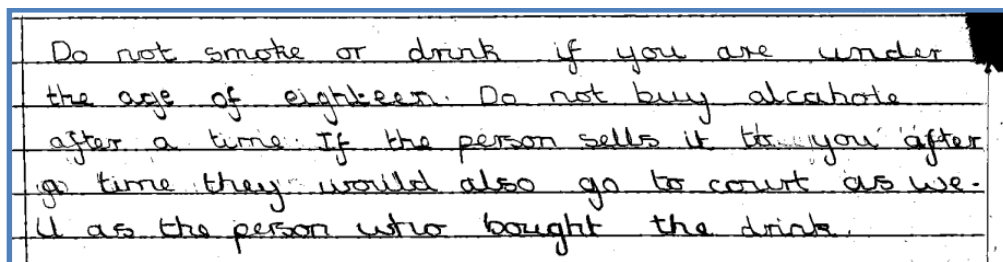 Do not smoke or drink if you are under
the age of eighteen. Do not buy alcahole
after a time. If the person sells it to you after
a time they would also go to court as we-
ll as the person who bought the drink.